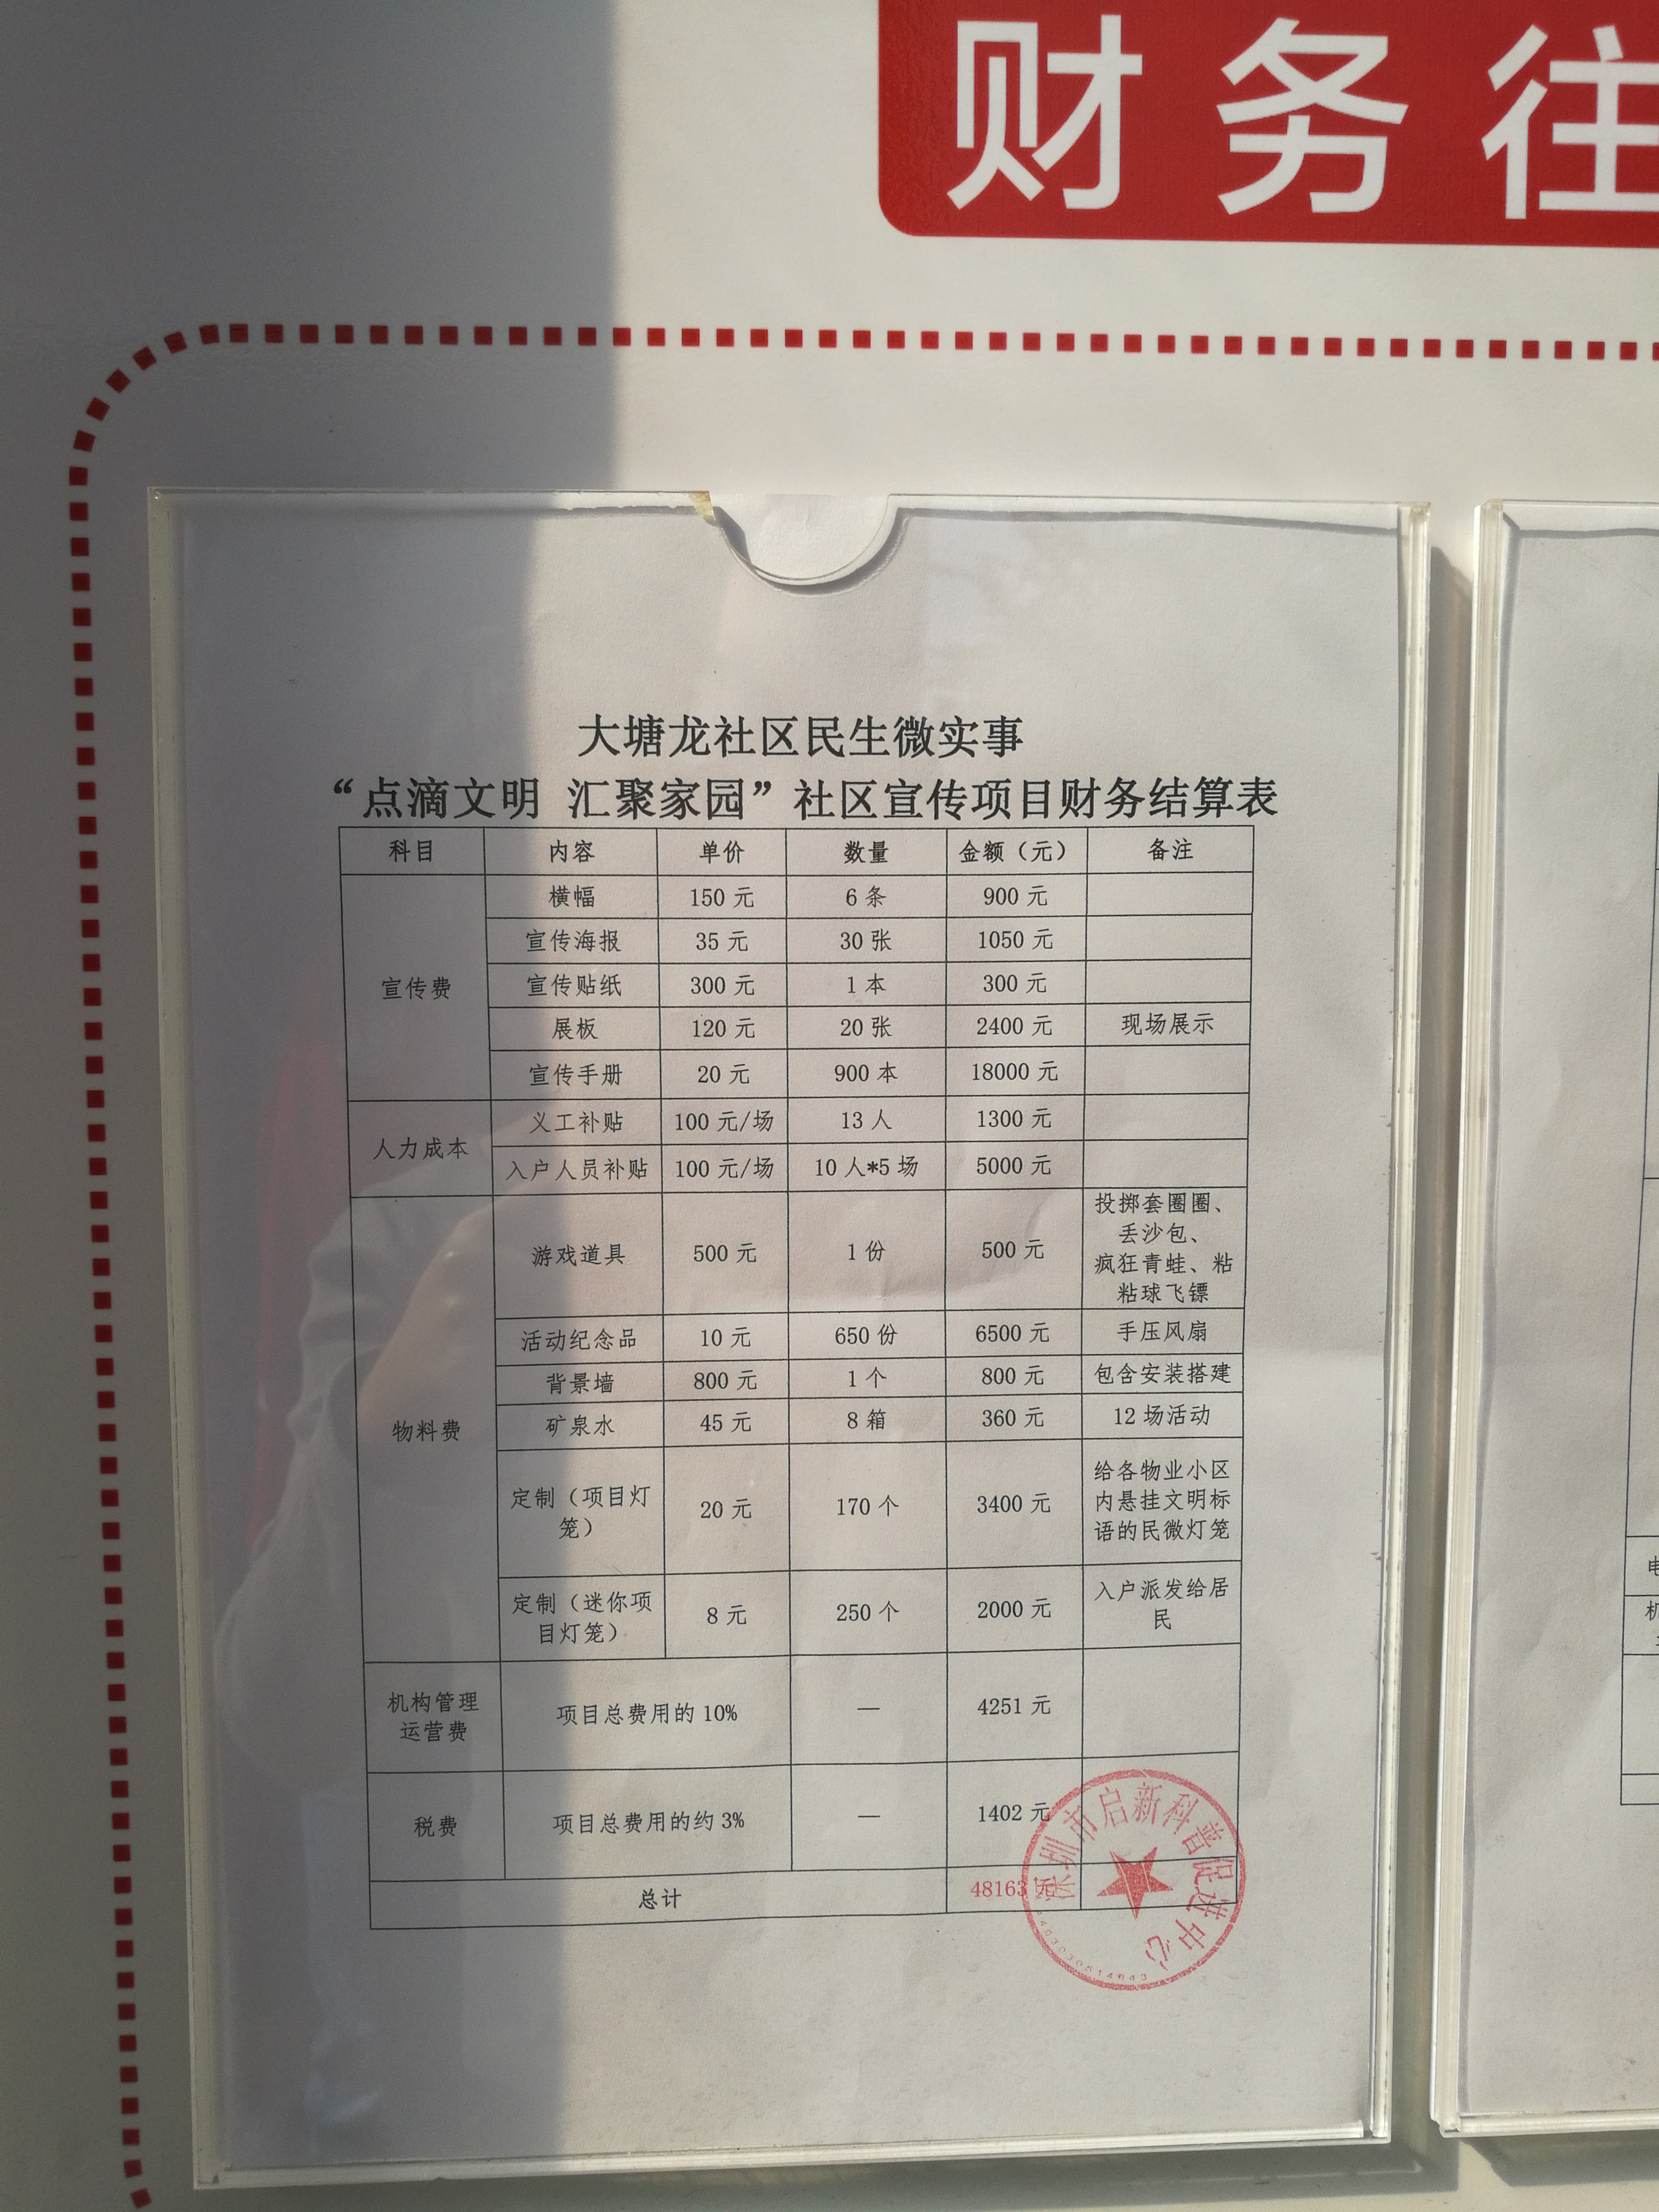 财务往
大塘龙社区民生微实事
“点滴文明 汇聚家园”社区宣传项目财务结算表
科目 内容 单价 数量 金额（元） 备注
宣传费
横幅 150 元 6 条 900 元
宣传海报 35 元 30 张 1050 元
宣传贴纸 300 元 1 本 300 元
展板 120 元 20 张 2400 元 现场展示
宣传手册 20 元 900 本 18000 元
人力成本
义工补贴 100 元/场 13 人 1300 元
入户人员补贴 100 元/场 10 人*5 场 5000 元
物料费
游戏道具 500 元 1 份 500 元
投掷套圈圈、
丢沙包、
疯狂青蛙、粘
粘球飞镖
活动纪念品 10 元 650 份 6500 元 手压风扇
背景墙 800 元 1 个 800 元 包含安装搭建
矿泉水 45 元 8 箱 360 元 12 场活动
定制（项目灯
笼） 20 元 170 个 3400 元
给各物业小区
内悬挂文明标
语的民微灯笼
定制（迷你项
目灯笼） 8 元 250 个 2000 元
入户派发给居
民
机构管理
运营费 项目总费用的 10% — 4251 元
税费 项目总费用的约 3% — 1402 元
总计 48163 元
深圳市启新科普促进中心